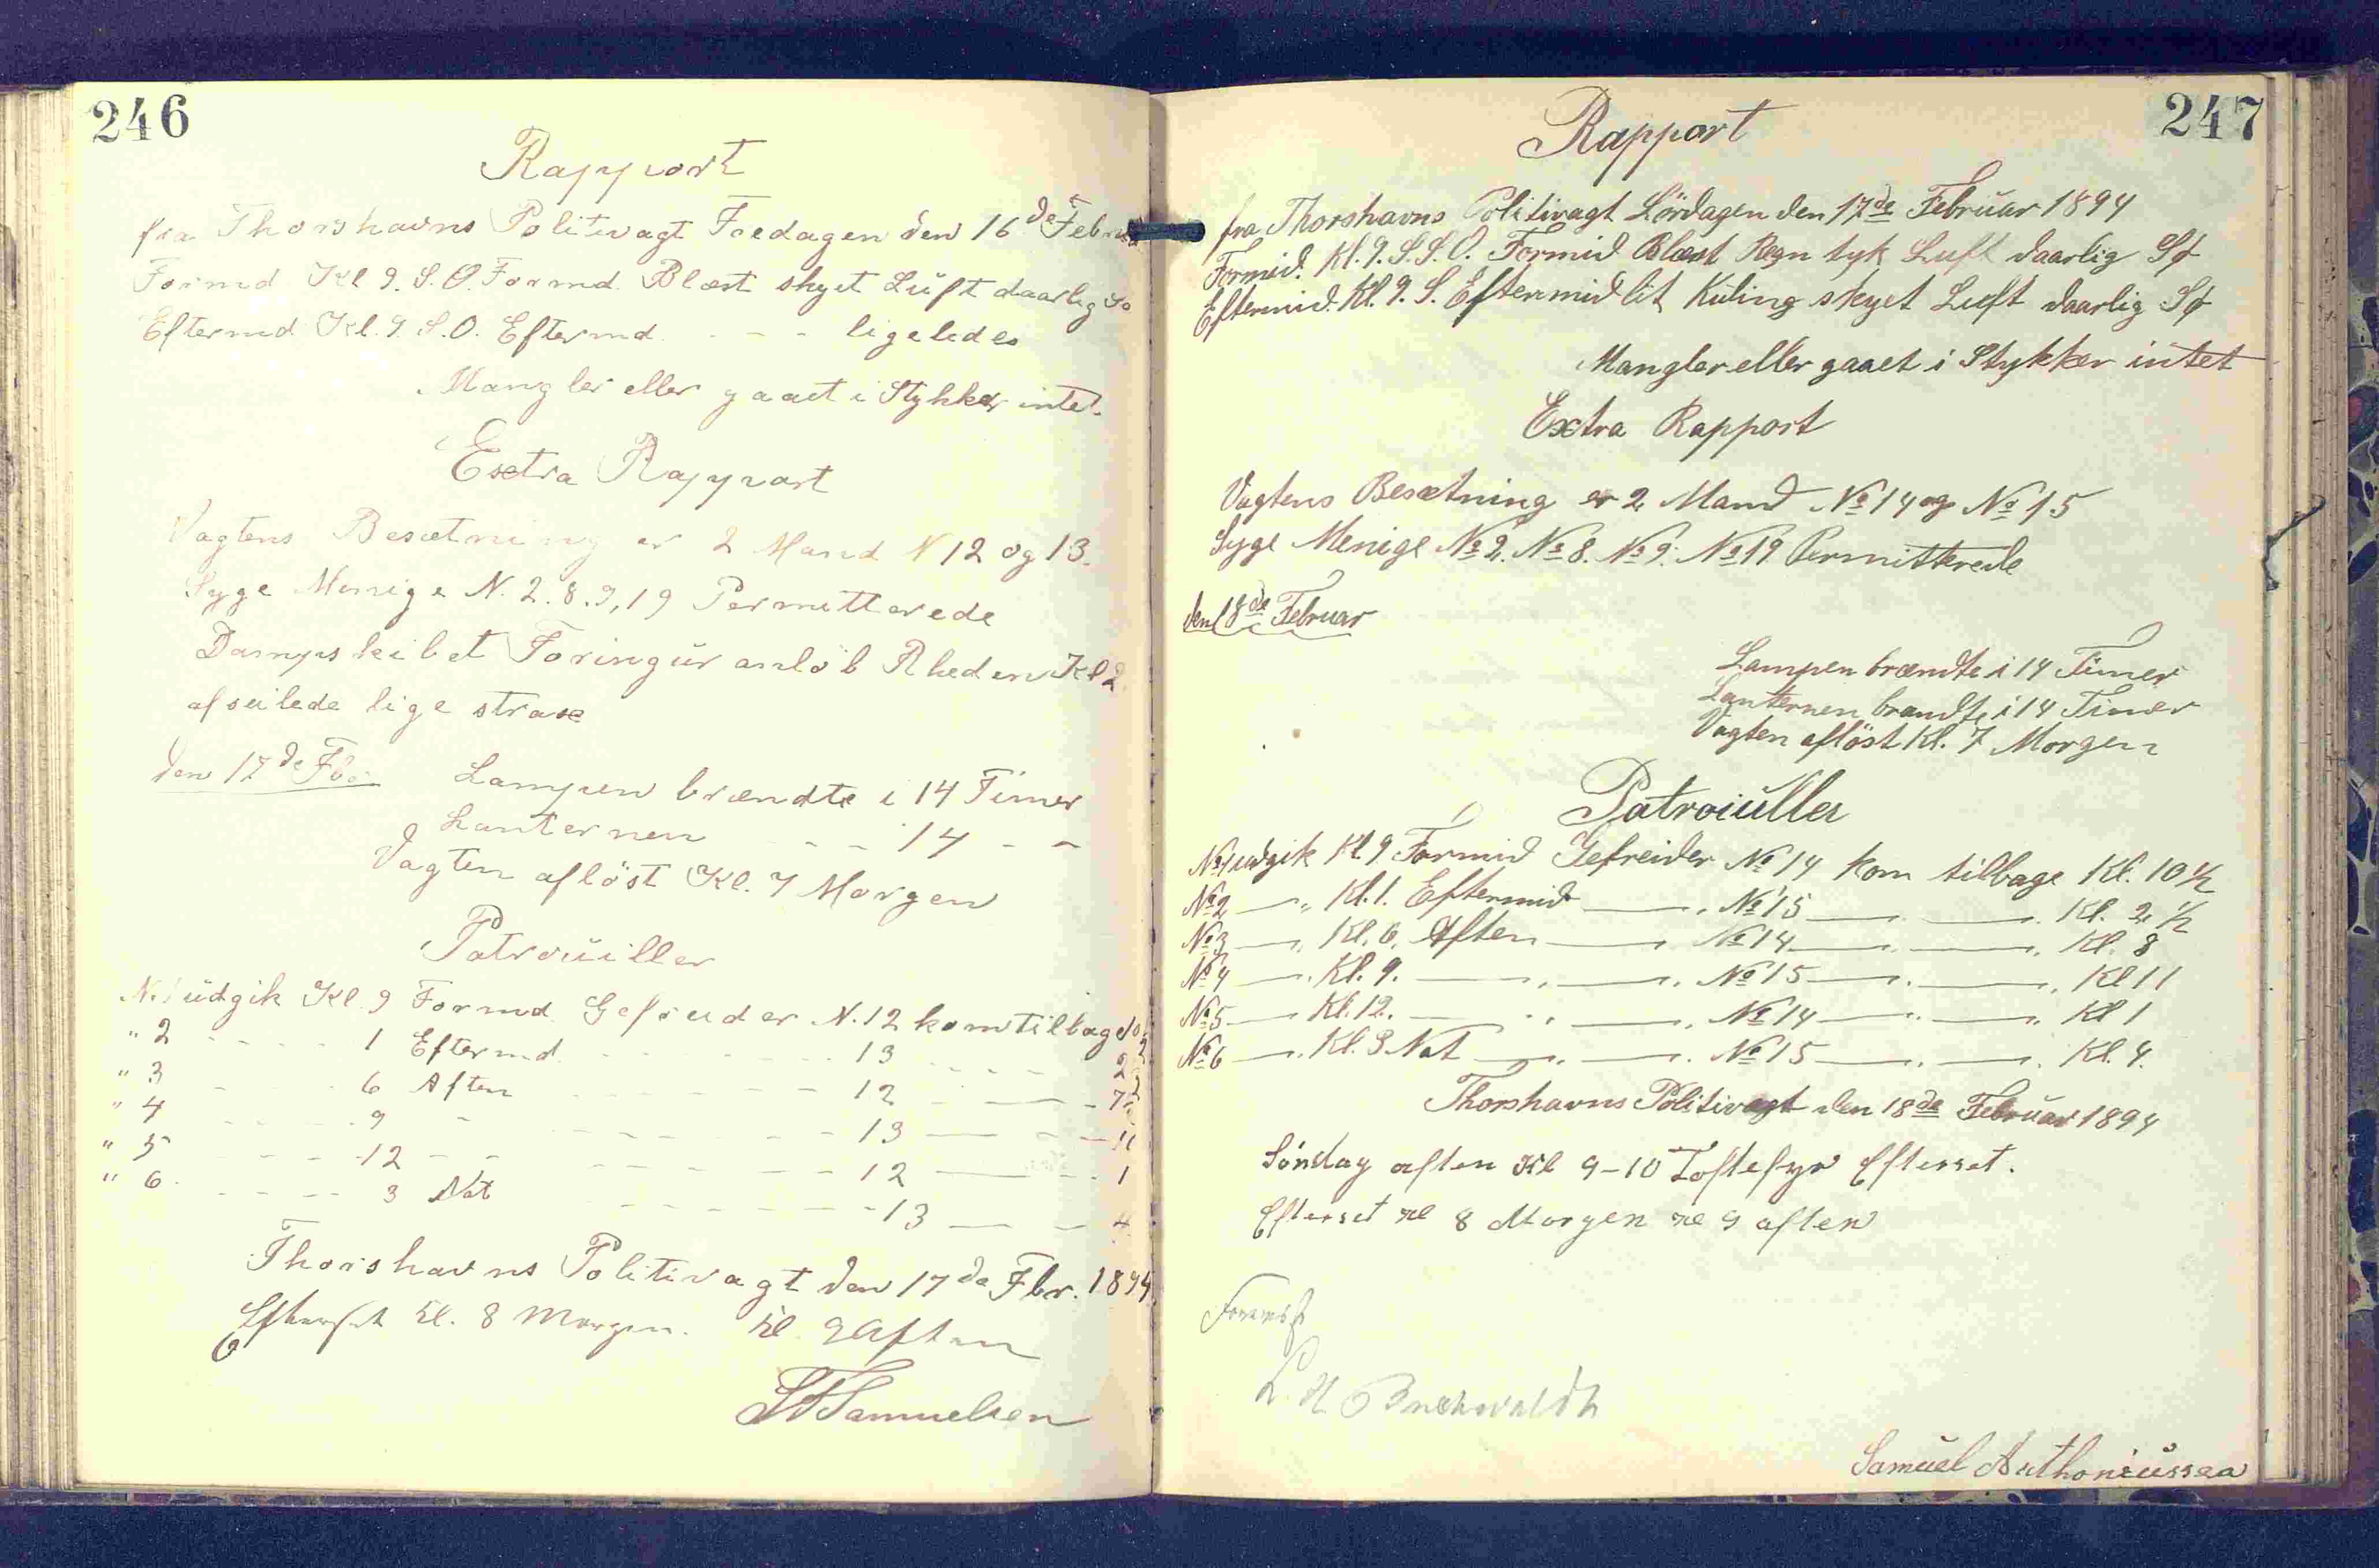 246
Rapport
fra Thorshavns Politivagt Fredagen den 16de Febru
Formd Kl 9. S.O. Formd. Blæst skyet Luft daarlig So
Eftermd Kl. 9. S.O. Eftermd. - - - ligeledes
Mangler eller gaaet i Stykker intet.
Extra Rapport
Vagtens Besætning er 2 Mand N 12 og 13.
Syge Menige N. 2. 8. 9, 19 Permitterede
Dampskibet Foringur anlöb Rheden Kl 2.
afseilede lige strax
den 17de Fbr. Lampen brændte i 14 Timer
Lanternen - - 14 - -
Vagten aflöst Kl. 7 Morgen
Patrouiller
N. 1 udgik Kl. 9 Formd. Gefreider N. 12 kom tilbage
" 2 - - - - 1 Eftermd. - - - - 13 - - - - 2
" 3 - 6 Aften - - - - 12 - - 7
" 4 - - - - 9 - - - - - - 13 - - 11
" 5 - - - 12 - - - - - - 12 - - 1
" 6 - - - - 3 Nat - - - - - - 13 - - 4
Thorshavns Politivagt den 17de Fbr. 1894.
Efterset kl. 8 Morgen. kl. 9 Aften
Samuelsen
247
Rapport
fra Thorshavns Politivagt Lördagen den 17de Februar 1894
Formid. Kl. 9. S.S.O. Formid Blæst Regn tyk Luft daarlig Sø
Eftermid. Kl. 9. S. Eftermid lit Kuling skyet Luft daarlig Sø
Mangler eller gaaet i Stykker intet
Extra Rapport
Vagtens Besætning er 2 Mand No 14 og No 15
Syge Menige No 2. No 8. No 9. No 19 Permitterede
den 18de Februar
Lampen brændte i 14 Timer
Lanternen brændte i 14 Timer
Vagten aflöst Kl. 7 Morgen
Patroiuller
No 1 udgik Kl. 9 Formid Gefreider No 14 kom tilbage Kl. 10 1/2
No 2 — " Kl. 1. Eftermid — " No 15 — " — " Kl. 2 1/2
No 3 — " Kl. 6. Aften — " No 14 — " — " Kl. 8
No 4 — " Kl. 9. — " — " No 15 — " — " Kl 11
No 5 — " Kl. 12. — " — " No 14 — " — " Kl 1
No 6 — " Kl. 3 Nat — " — " No 15 — " — " Kl. 4.
Thorshavns Politivagt den 18de Februar 1894
Söndag aften Kl 9-10 Toftefyr Efterset.
Efterset Kl 8 Morgen Kl 9 aften
L. H. Buchwaldt
Samuel Anthoniussen